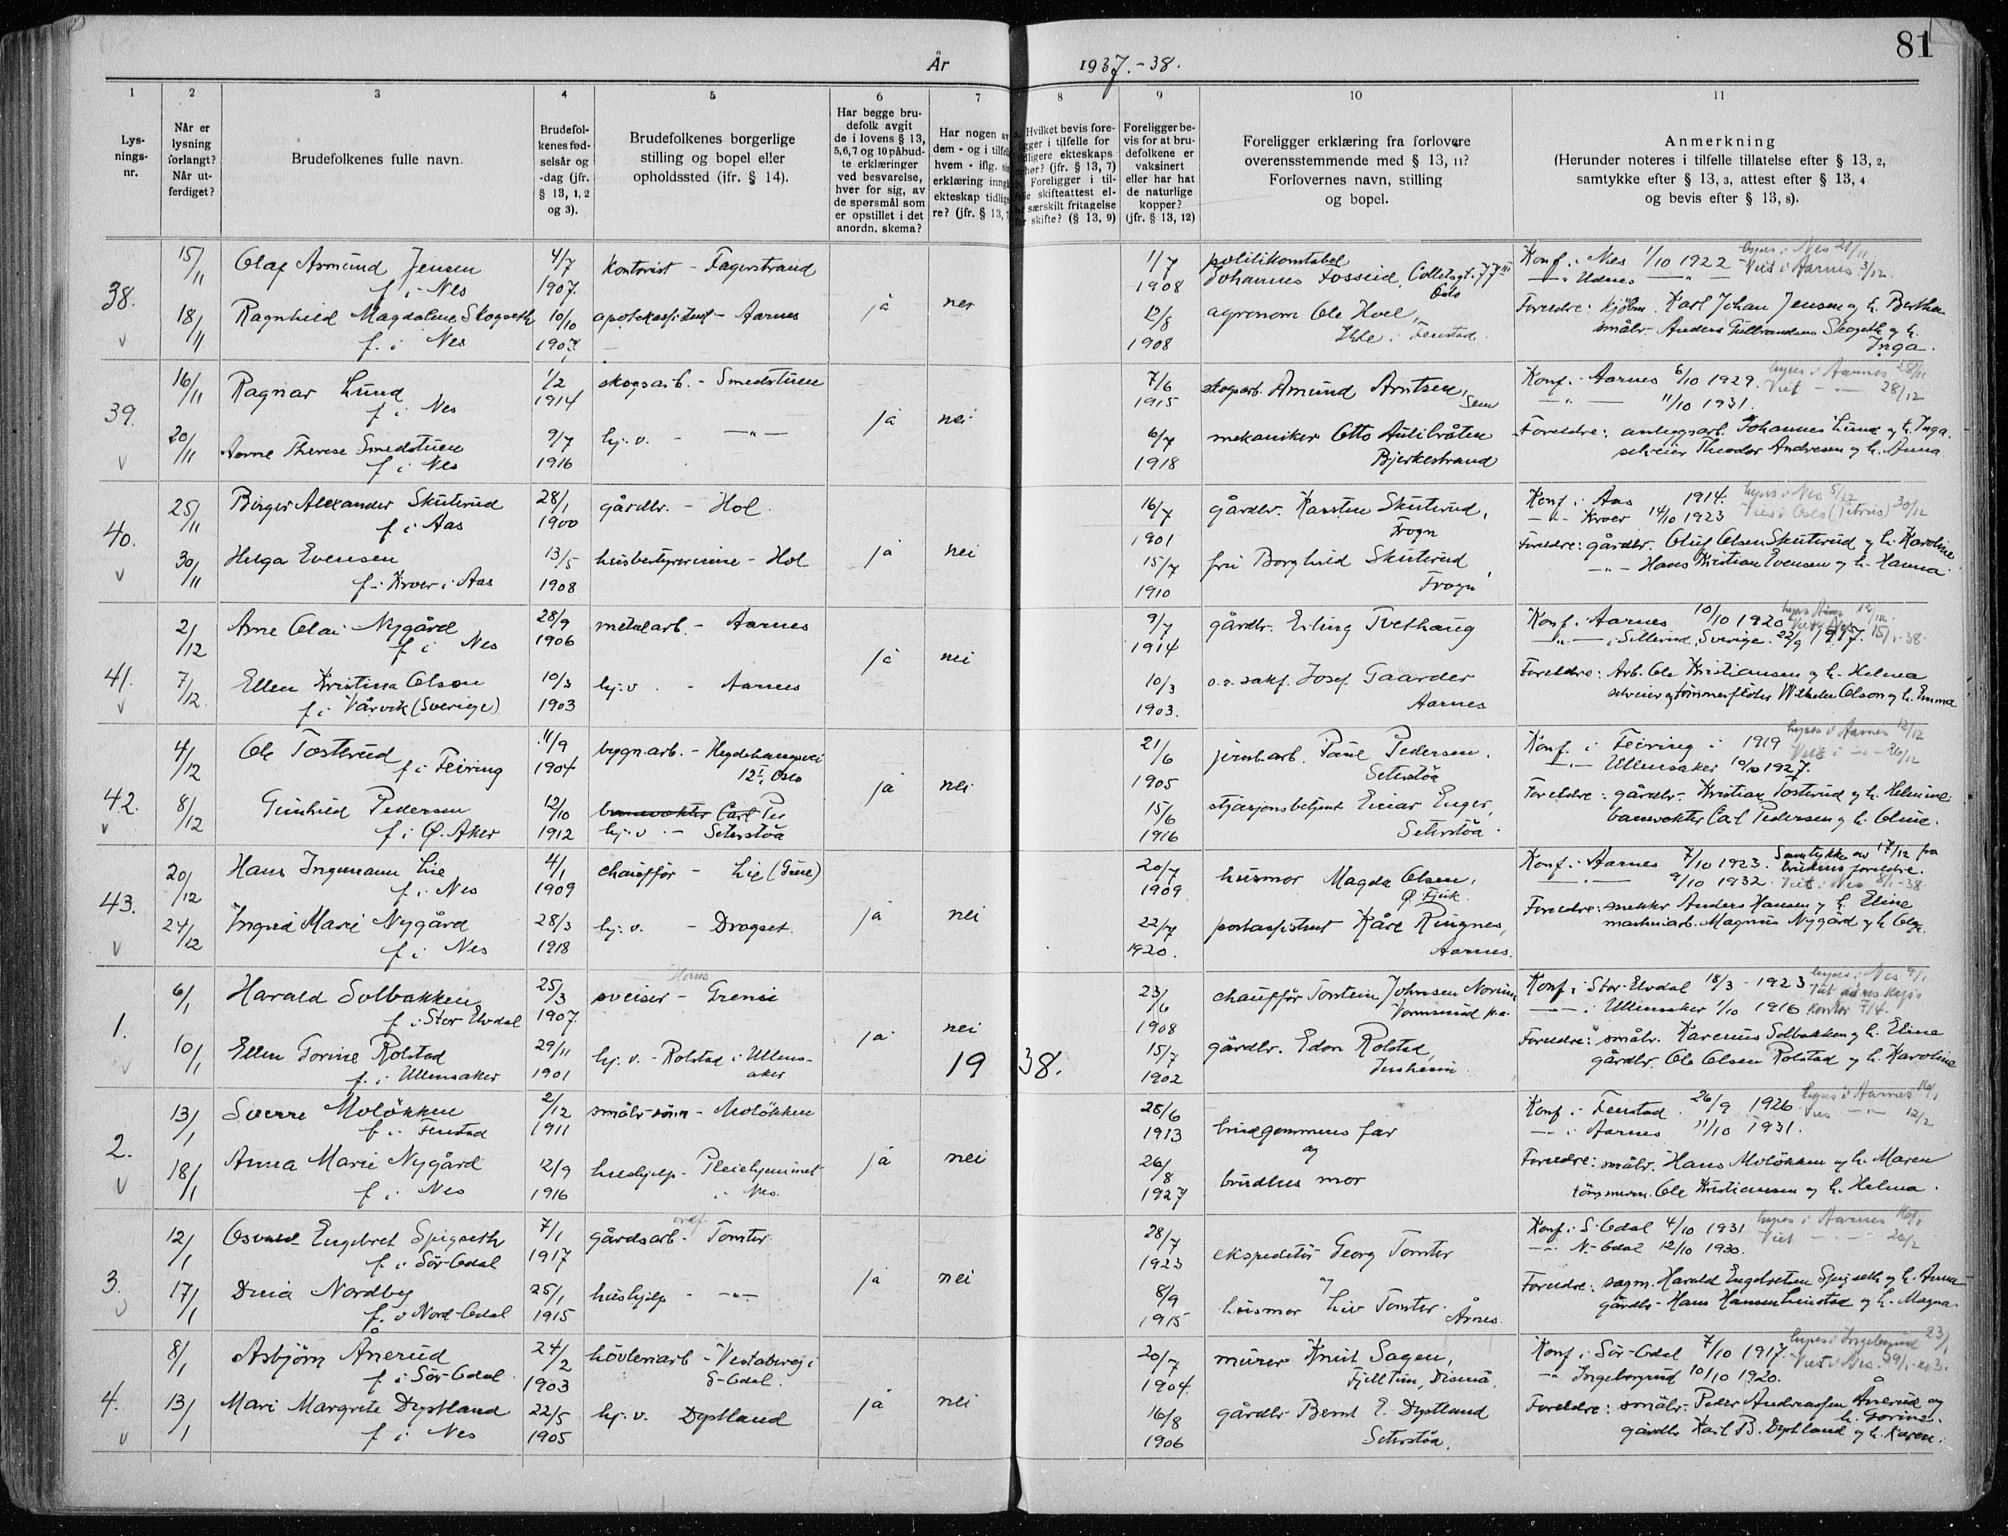 81
År 1937.-38.
1 2 3 4 5 6 7 8 9 10 11
Lys-
nings-
nr.
Når er
lysning
forlangt?
Når ut-
ferdiget?
Brudefolkenes fulle navn.
Brudefol-
kenes fød-
selsår og
-dag (jfr.
§ 13, 1, 2
og 3).
Brudefolkenes borgerlige
stilling og bopel eller
opholdssted (ifr. § 14).
Har begge bru-
defolk avgit
de i lovens § 13,
5,6,7 og 10 påbud-
te erklæringer
ved besvarelse,
hver for sig, av
de spørsmål som
er opstillet i det
anordn. skema?
Har nogen av
dem - og i tilfelle
hvem - iflg.
erklæring inngå
ekteskap tidlige
re? (jfr. § 13,
Hvilket bevis fore-
ligger i tilfelle for
tidligere ekteskaps
ophør? (jfr. § 13, 7)
Foreligger i til-
felle skifteattest el-
særskilt fritagelse
for skifte? (§ 13, 9)
Foreligger be-
vis for at bru-
defolkene er
vaksinert
eller har hat
de naturlige
kopper?
(jfr. § 13, 12)
Foreligger erklæring fra forlovere
overensstemmende med § 13, 11?
Forlovernes navn, stilling
og bopel.
Anmerkning
(Herunder noteres i tilfelle tillatelse efter § 13, 2,
samtykke efter § 13, 3, attest efter § 13, 4
og bevis efter § 13, 8).
38.
15/11 Olaf Asmund Jensen 4/7 kontorist - Fagerstrand 1/7 politikonstabel Konf. i Nes 1/10 1922 lyses i Nes 21/11
f. i Nes 1907. 1908 Johannes Fosseid, Colletsgt. 77 III Oslo —"— Udnes —"— Viet i Aarnes 3/12.
18/11 Ragnhild Magdalene Skogseth 10/10 apotekassistent - Aarnes ja nei 12/8 agronom Ole Hoel, Foreldre: kjøbm. Karl Johan Jensen og h. Berthe
f. i Nes 1907. 1908 Fenstad. småbr. Anders Gulbrandsen Skogseth og h.
Inga.
39.
16/11 Ragnar Lund 1/2 skogsarb. - Smedstuen 7/6 skogsarb. Amund Arntsen, Konf. i Aarnes 6/10 1929. lyses i Aarnes 28/11
f. i Nes 1914 ja nei 1915 Sem —"— 11/10 1931. Viet —"— 28/12
20/11 Aasne Therese Smedstuen 9/7 hj. v. - —"— 6/7 mekaniker Otto Aulibråten Foreldre: anleggsarb. Johannes Lund og h. Inga.
f. i Nes 1916 1918 Bjerkestrand selveier Theodor Andresen og h. Anna.
40.
25/11 Birger Alexander Skuterud 28/1 gårdbr. - Hol. 16/7 gårdbr. Karsten Skuterud, Konf. i Aas 1914. lyses i Nes 5/12
f. i Aas 1900 1901 Frogn —"— Kroer 14/10 1923 Viet i Oslo (Petrus) 30/12
30/11 Helga Evensen 13/5 husbestyrerinne - Hol ja nei 15/7 fru Borghild Skuterud Foreldre: gårdbr. Oluf Olsen Skuterud og h. Karoline
f. i Kroer i Aas 1908 1910 Frogn —"— Hans Kristian Evensen og h. Hanna.
41.
2/12 Arne Olai Nygård 28/9 metalarb. - Aarnes 9/7 gårdbr. Erling Tvethaug Konf. i Aarnes 10/10 1920
f. i Nes 1906 ja nei 1914 —"— i Sillerud, Sverige. 22/9 1917. 15/1-38.
7/12 Ellen Kristina Olson 10/3 hj. v. - Aarnes 10/3 o.r. sakf. Josef Gaarder Foreldre: Arb. Ole Kristiansen og h. Helma
f. i Vårvik (Sverige) 1903 1903. Aarnes selveier og tømmerfløter Wilhelm Olson og h. Emma
42.
4/12 Ole Tosterud 11/9 bygn.arb. - Hegdehaugsvei 21/6 jernb.arb. Paul Pedersen. Konf. i Feiring i 1919 lyses i Aarnes 12/12
f. i Feiring 1904 12 I, Oslo ja nei 1905 Seterstøa —"— Ullensaker 10/10 1927. Viet i —"— 26/12
8/12 Gunhild Pedersen 12/10 banevokter Carl Pe 15/6 stasjonsbetjent Einar Enger, Foreldre: gårdbr. Kristian Tosterud og h. Helmine
f. i Ø. Aker 1912 hj. v. - Seterstøa 1916 Seterstøa. banevokter Carl Pedersen og h. Oline.
43.
20/12 Hans Ingemann Lie 4/1 chauffør - Lie (Grue) 20/7 husmor Magda Olsen, Konf. i Aarnes 7/10 1923. Samtykke av 17/12 fra
f. i Nes 1909 1909 Ø. Fjuk. —"— 9/10 1932. brudens foreldre. Viet i Nes 8/1-38
24/12 Ingrid Marie Nygård 28/3 hj. v. - Dragset. ja nei 22/7 postassistent Kåre Ringnes, Foreldre: snekker Anders Hansen og h. Eline
f. i Nes 1918 1920. Aarnes. maskinarb. Magnus Nygård og h. Olga.
1.
6/1 Harald Solbakken 25/3 sveiser - Grensi 23/6 chauffør Torstein Johnsen Norum Konf. i Stor-Elvdal 18/3 - 1923 lyses i Nes 9/1
f. i Stor Elvdal 1907. 1908 Vormsund p.a. —"— i Ullensaker 1/10 1916 kontor 7/4.
10/1 Ellen Gorine Rolstad 29/11 hj. v. - Rolstad i Ullens- ja nei 15/7 gårdbr. Edon Rolstad, Foreldre: småbr. Karenus Solbakken og h. Eline
f. i Ullensaker 1901 aker 1902 Jessheim. gårdbr. Ole Olsen Rolstad og h. Karoline
1938.
2.
13/1 Sverre Moløkken 2/12 småbr.sønn - Moløkken 28/6 brudgommens far Konf. i Fenstad 26/9 1926. lyses i Aarnes 16/1
f. i Fenstad 1911 1913 og —"— i Aarnes 11/10 1931. Vies —"— 12/2
18/1 Anna Marie Nygård 12/9 hushjelp - Pleiehjemmet ja nei 26/8 brudens mor Foreldre: småbr. Hans Moløkken og h. Maren
f. i Nes 1916 i Nes. 1927 tømmerm. Ole Kristiansen og h. Helma.
3.
12/1 Osvald Engebret Spigseth 7/1 gårdsarb. - Tomter 28/7 ekspeditør Georg Tomter Konf. i S-Odal 4/10 1931 lyses i Aarnes 16/1
f. i Sør-Odal 1917 1923 og —"— N-Odal 12/10 1930. Viet —"— 20/2
17/1 Dina Nordby 25/1 hushjelp - —"— ja nei 8/9 husmor Liv Tomter. Foreldre: sagm. Harald Engebretsen Spigseth og h. Anna
f. i Nord-Odal 1915 1915 Årnes. gårdbr. Hans Hansen Linstad og h. Magna.
4.
8/1 Asbjørn Ånerud 24/2 høvleriarb - Vestaberg i 20/7 murer Knut Sagen, Konf. i Sør-Odal 7/10 1917. lyses i Ingeborgrud 23/1
f. i Sør-Odal. 1903 S-Odal. 1904. Fjelltun, Disenå. —"— Ingeborgrud 10/10 1920. Viet i Nes.
13/1 Mari Margrete Dystland 22/5 hj. v. Dystland ja nei 16/8 gårdbr. Bernt E. Dystland Foreldre: småbr. Peder Andreassen Ånerud og
f. i Nes 1905 1906 Seterstøa. h. Gorine.
gårdbr. Karl B. Dystland og h. Karen.